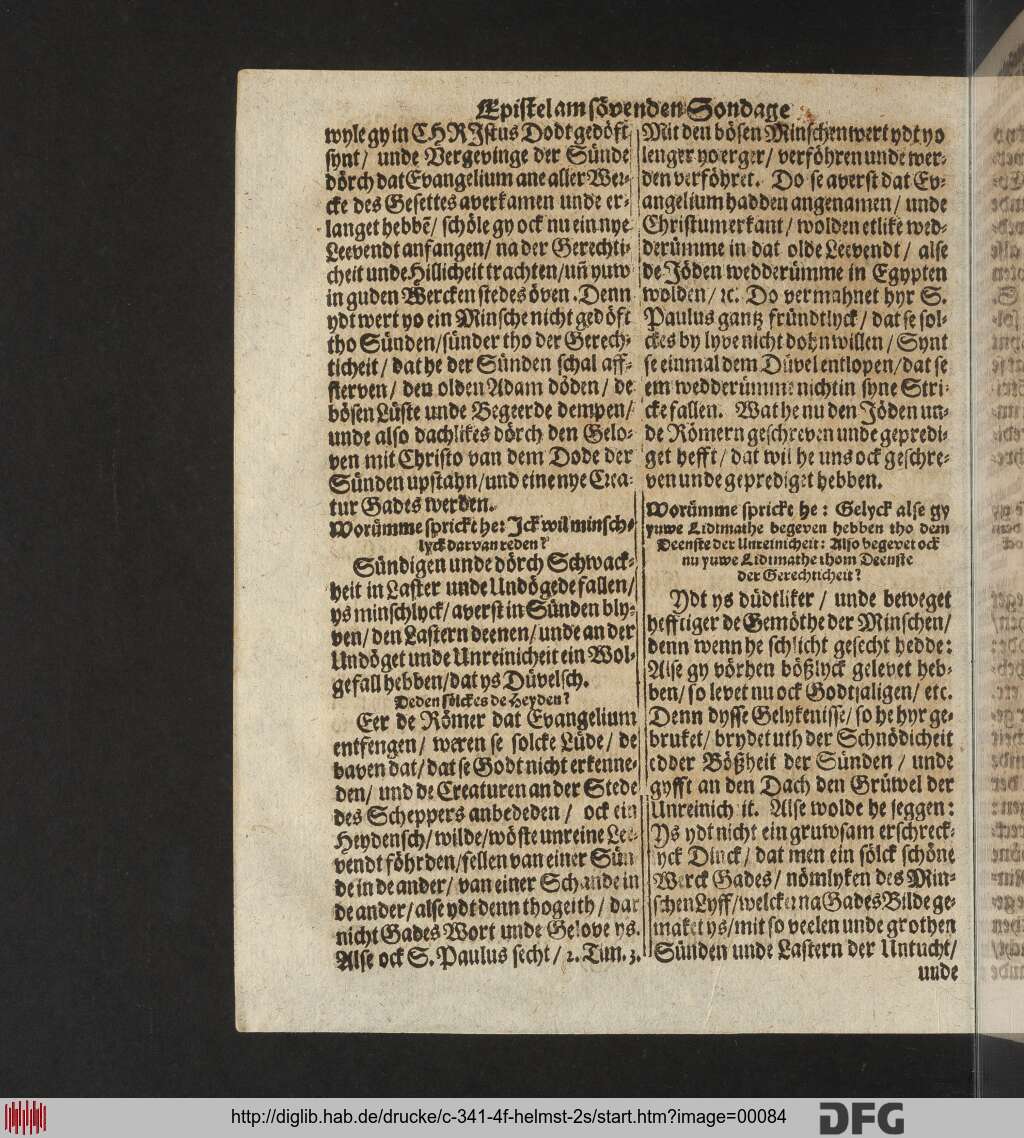 Epistel am sövenden Sondage
wyle gy in CHRIstus Dodt gedöft
synt/ unde Vergevinge der Sünde
dörch dat Evangelium ane aller Wer-
cke des Gesettes averkamen unde er-
langet hebbē/ schöle gy ock nu ein nye
Leevendt anfangen/ na der Gerechti-
cheit unde Hillicheit trachten/ uñ yuw
in guden Wercken stedes öven. Denn
ydt wert yo ein Minsche nicht gedöft
tho Sünden/ sünder tho der Gerech-
ticheit/ dat he der Sünden schal aff-
sterven/ den olden Adam döden/ de
bösen Lüste unde Begeerde dempen/
unde also dachlikes dörch den Gelo-
ven mit Christo van dem Dode der
Sünden upstahn/ und eine nye Crea-
tur Gades werden.
Worümme sprickt he: Ick wil minsch-
lyck darvan reden?
Sündigen unde dörch Schwack-
heit in Laster unde Undögede fallen/
ys minschlyck/ averst in Sünden bly-
ven/ den Lastern deenen/ unde an der
Undöget unde Unreinicheit ein Wol-
gefall hebben/ dat ys Düvelsch.
Deden sölckes de Heyden?
Eer de Römer dat Evangelium
entfengen/ weren se solcke Lüde/ de
baven dat/ dat se Godt nicht erkenne-
den/ und de Creaturen an der Stede
des Scheppers anbededen/ ock ein
Heydensch/ wilde/ wöste unreine Lee-
vendt föhrden/ fellen van einer Sün
de in de ander/ van einer Schande in
de ander/ alse ydt denn thogeith/ dar
nicht Gades Wort unde Gelove ys.
Alse ock S. Paulus secht/ 2. Tim. 3.
Mit den bösen Minschen wert ydt yo
lenger yo erger/ verföhren unde wer-
den verföhret. Do se averst dat Ev-
angelium hadden angenamen/ unde
Christum erkant/ wolden etlike wed-
derümme in dat olde Leevendt/ alse
de Jöden wedderümme in Egypten
wolden/ ꝛc. Do vermahnet hyr S.
Paulus gantz fründtlyck/ dat se sol-
ckes by lyve nicht dohn willen/ Synt
se einmal dem Düvel entlopen/ dat se
em wedderümme nicht in syne Stri-
cke fallen. Wat he nu den Jöden un-
de Römern geschreven unde gepredi-
get hefft/ dat wil he uns ock geschre-
ven unde geprediget hebben.
Worümme sprickt he: Gelyck alse gy
yuwe Lidtmathe begeven hebben tho dem
Deenste der Unreinicheit: Also begevet ock
nu yuwe Lidtmathe thom Deenste
der Gerechticheit?
Ydt ys düdtliker/ unde beweget
hefftiger de Gemöthe der Minschen/
denn wenn he schlicht gesecht hedde:
Alse gy vörhen bößlyck gelevet heb-
ben/ so levet nu ock Godtsaligen/ etc.
Denn dysse Gelykenisse/ so he hyr ge-
bruket/ brydet uth der Schnödicheit
edder Bößheit der Sünden/ unde
gyfft an den Dach den Grüwel der
Unreinich it. Alse wolde he seggen:
Ys ydt nicht ein gruwsam erschreck-
lyck Dinck/ dat men ein sölck schöne
Werck Gades/ nömlyken des Min-
schen Lyff/ welcker na Gades Bilde ge-
maket ys/ mit so veelen unde grothen
Sünden unde Lastern der Untucht/
unde
http://diglib.hab.de/drucke/c-341-4f-helmst-2s/start.htm?image=00084
DFG